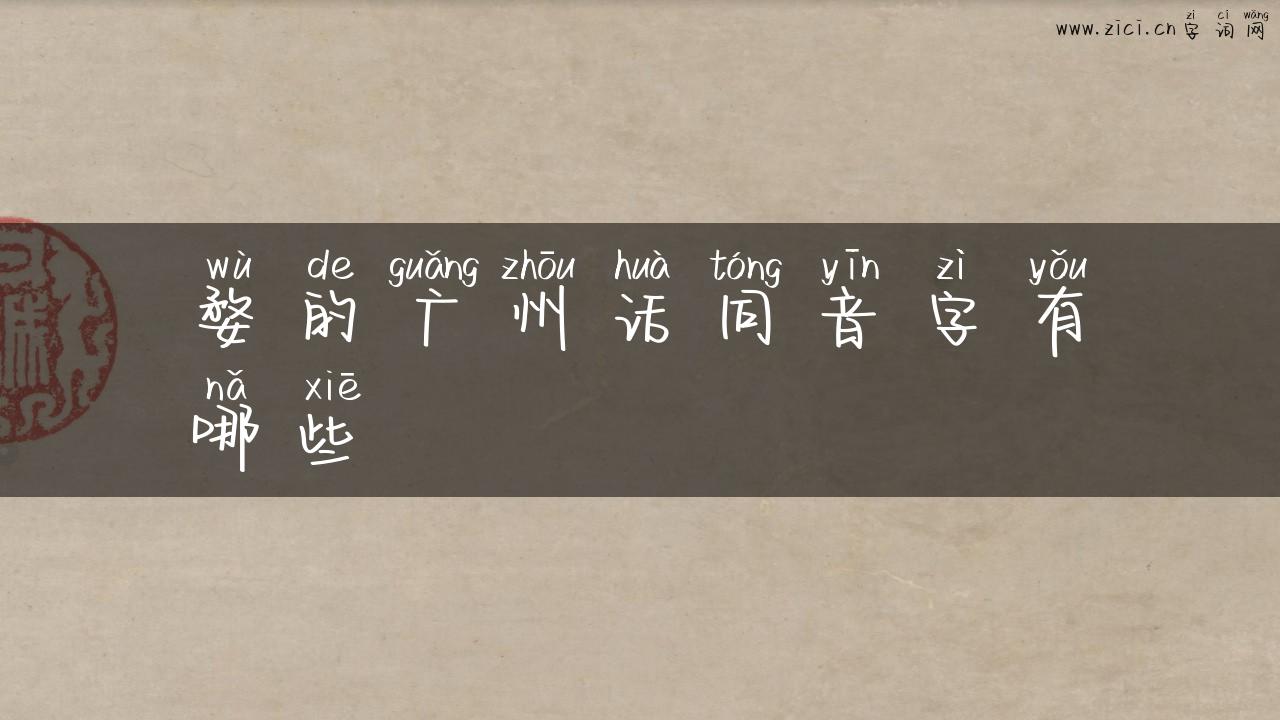 zì cí wǎng
www.zici.cn 字 词 网
wù de guǎng zhōu huà tóng yīn zì yǒu
婺 的 广 州 话 同 音 字 有
nǎ xiē
哪 些